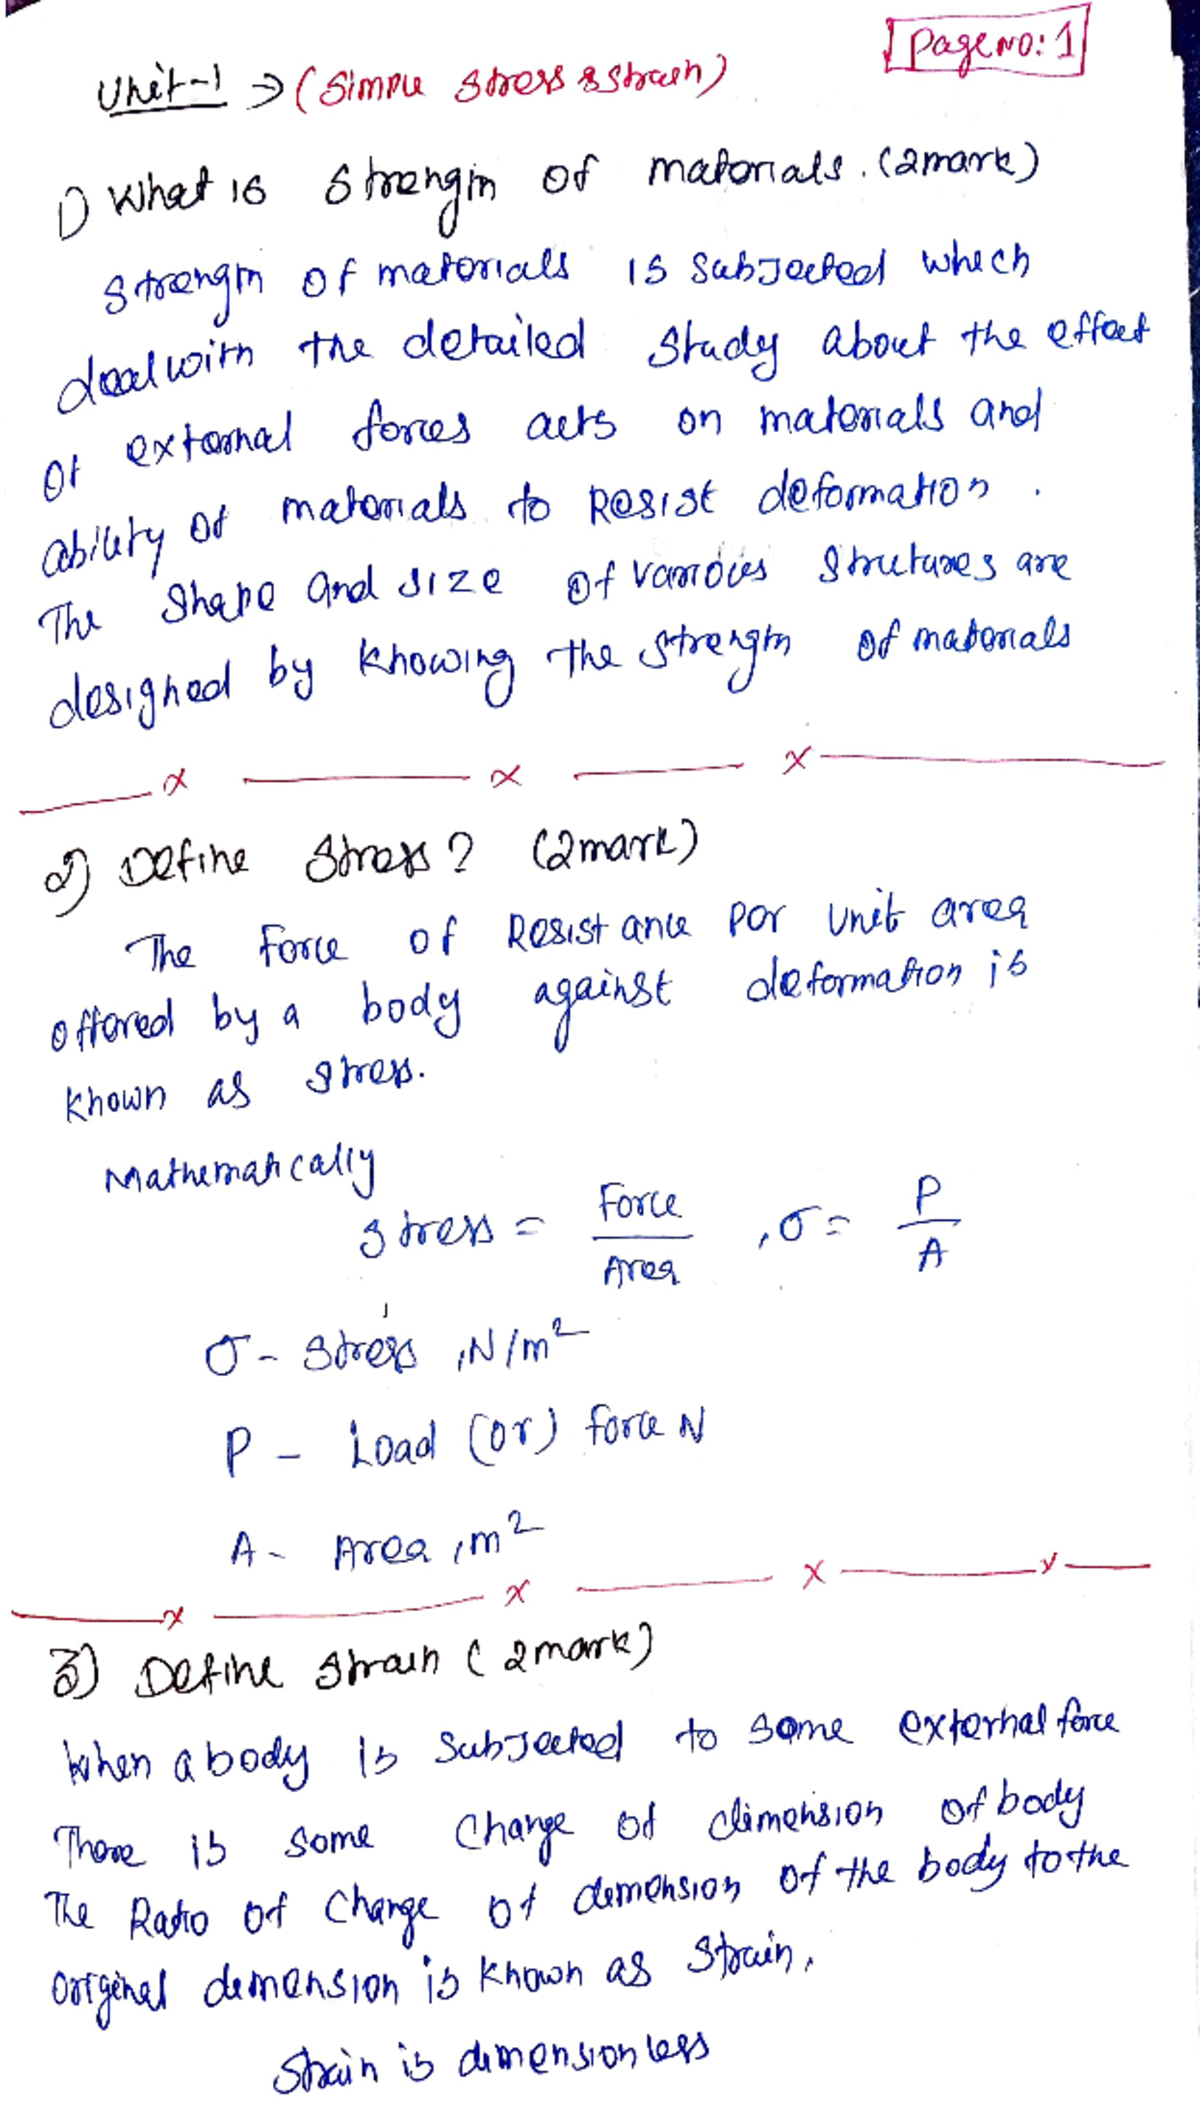 Page NO: 1
Unit-1 → (Simple stress & strain)
1) What is strength of materials. (2mark)
strength of materials is subjected which
deal with the detailed study about the effect
of external forces acts on materials and
ability of materials to Resist deformation.
The shape and size of various strutures are
designed by knowing the strength of materials
x x x
2) Define stress? (2mark)
The Force of Resistance per unit area
offered by a body against deformation is
known as stress.
Mathematically
stress = Force / Area , σ = P / A
σ - stress , N/m²
P - Load (or) force N
A - Area , m²
x x x x
3) Define strain (2mark)
When a body is subjected to some external force
There is some change of dimension of body
The Ratio of change of dimension of the body to the
original dimension is known as strain.
Strain is dimensionless